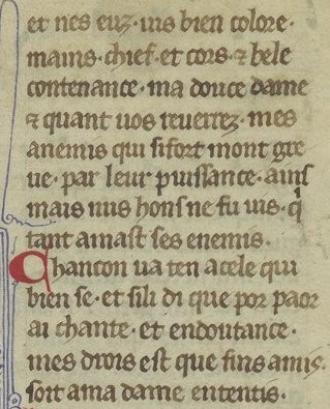 et nes euz· uis bien colore·
mains· chief· et cors· ⁊ bele
contenance· ma douce dame
⁊ quant uos reuerrez· mes
anemis qui si fort mont gre
ue· par leur puissance· ains
mais nus hons ne fu uis· q̃
tant amast ses enemis·
Chancon ua ten a cele qui
bien se· et si li di que por paor
ai chante· et en doutance·
mes drois est que fins amis·
soit a ma dame ententis·